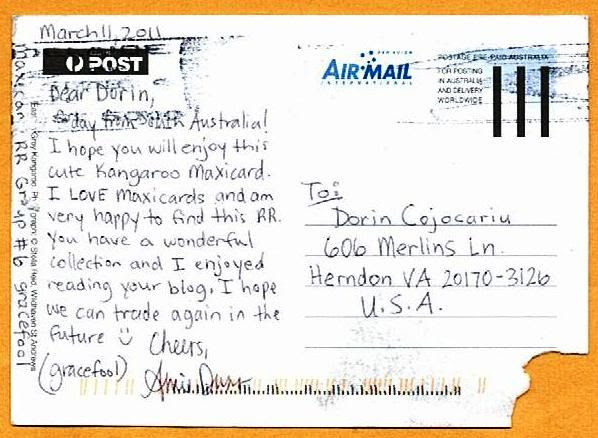 March 11, 2011
POST
Dear Dorin,
day from South Australia!
I hope you will enjoy this
cute Kangaroo Maxicard.
I LOVE Maxicards and am
very happy to find this RR.
You have a wonderful
collection and I enjoyed
reading your blog. I hope
we can trade again in the
future
Cheers,
(gracefool)
Maxicard RR Group #6 gracefool
PAR AVION
AIR MAIL
INTERNATIONAL
POSTAGE PRE-PAID AUSTRALIA
FOR POSTING
IN AUSTRALIA
AND DELIVERY
WORLDWIDE
To:
Dorin Cojocariu
606 Merlins Ln.
Herndon VA 20170-3126
U.S.A.